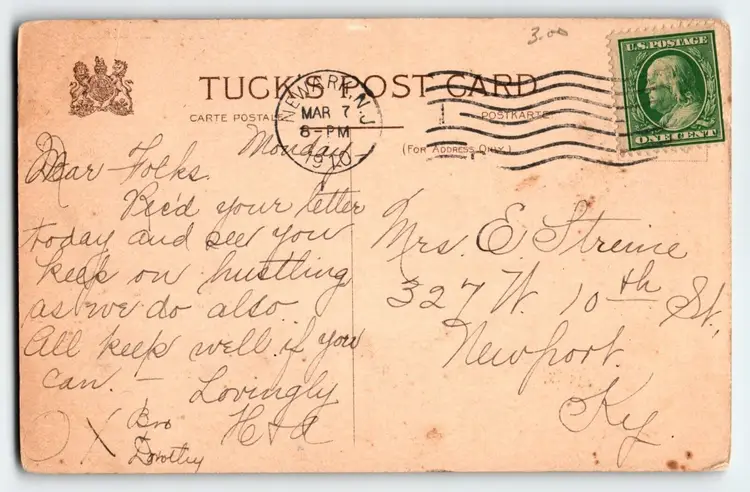 3.00
U.S. POSTAGE
ONE CENT
TUCK'S POST CARD
CARTE POSTALE
POSTKARTE
(FOR ADDRESS ONLY.)
NEWARK, N.J.
MAR 7
8-PM
1910
Monday
Dear Folks.
Rec'd your letter
today and see you
keep on hustling
as we do also.
All keep well if you
can. — Lovingly
H & A
X Bro
Dorothy
Mrs. E. Streine
327 W. 10th St.,
Newport.
Ky.